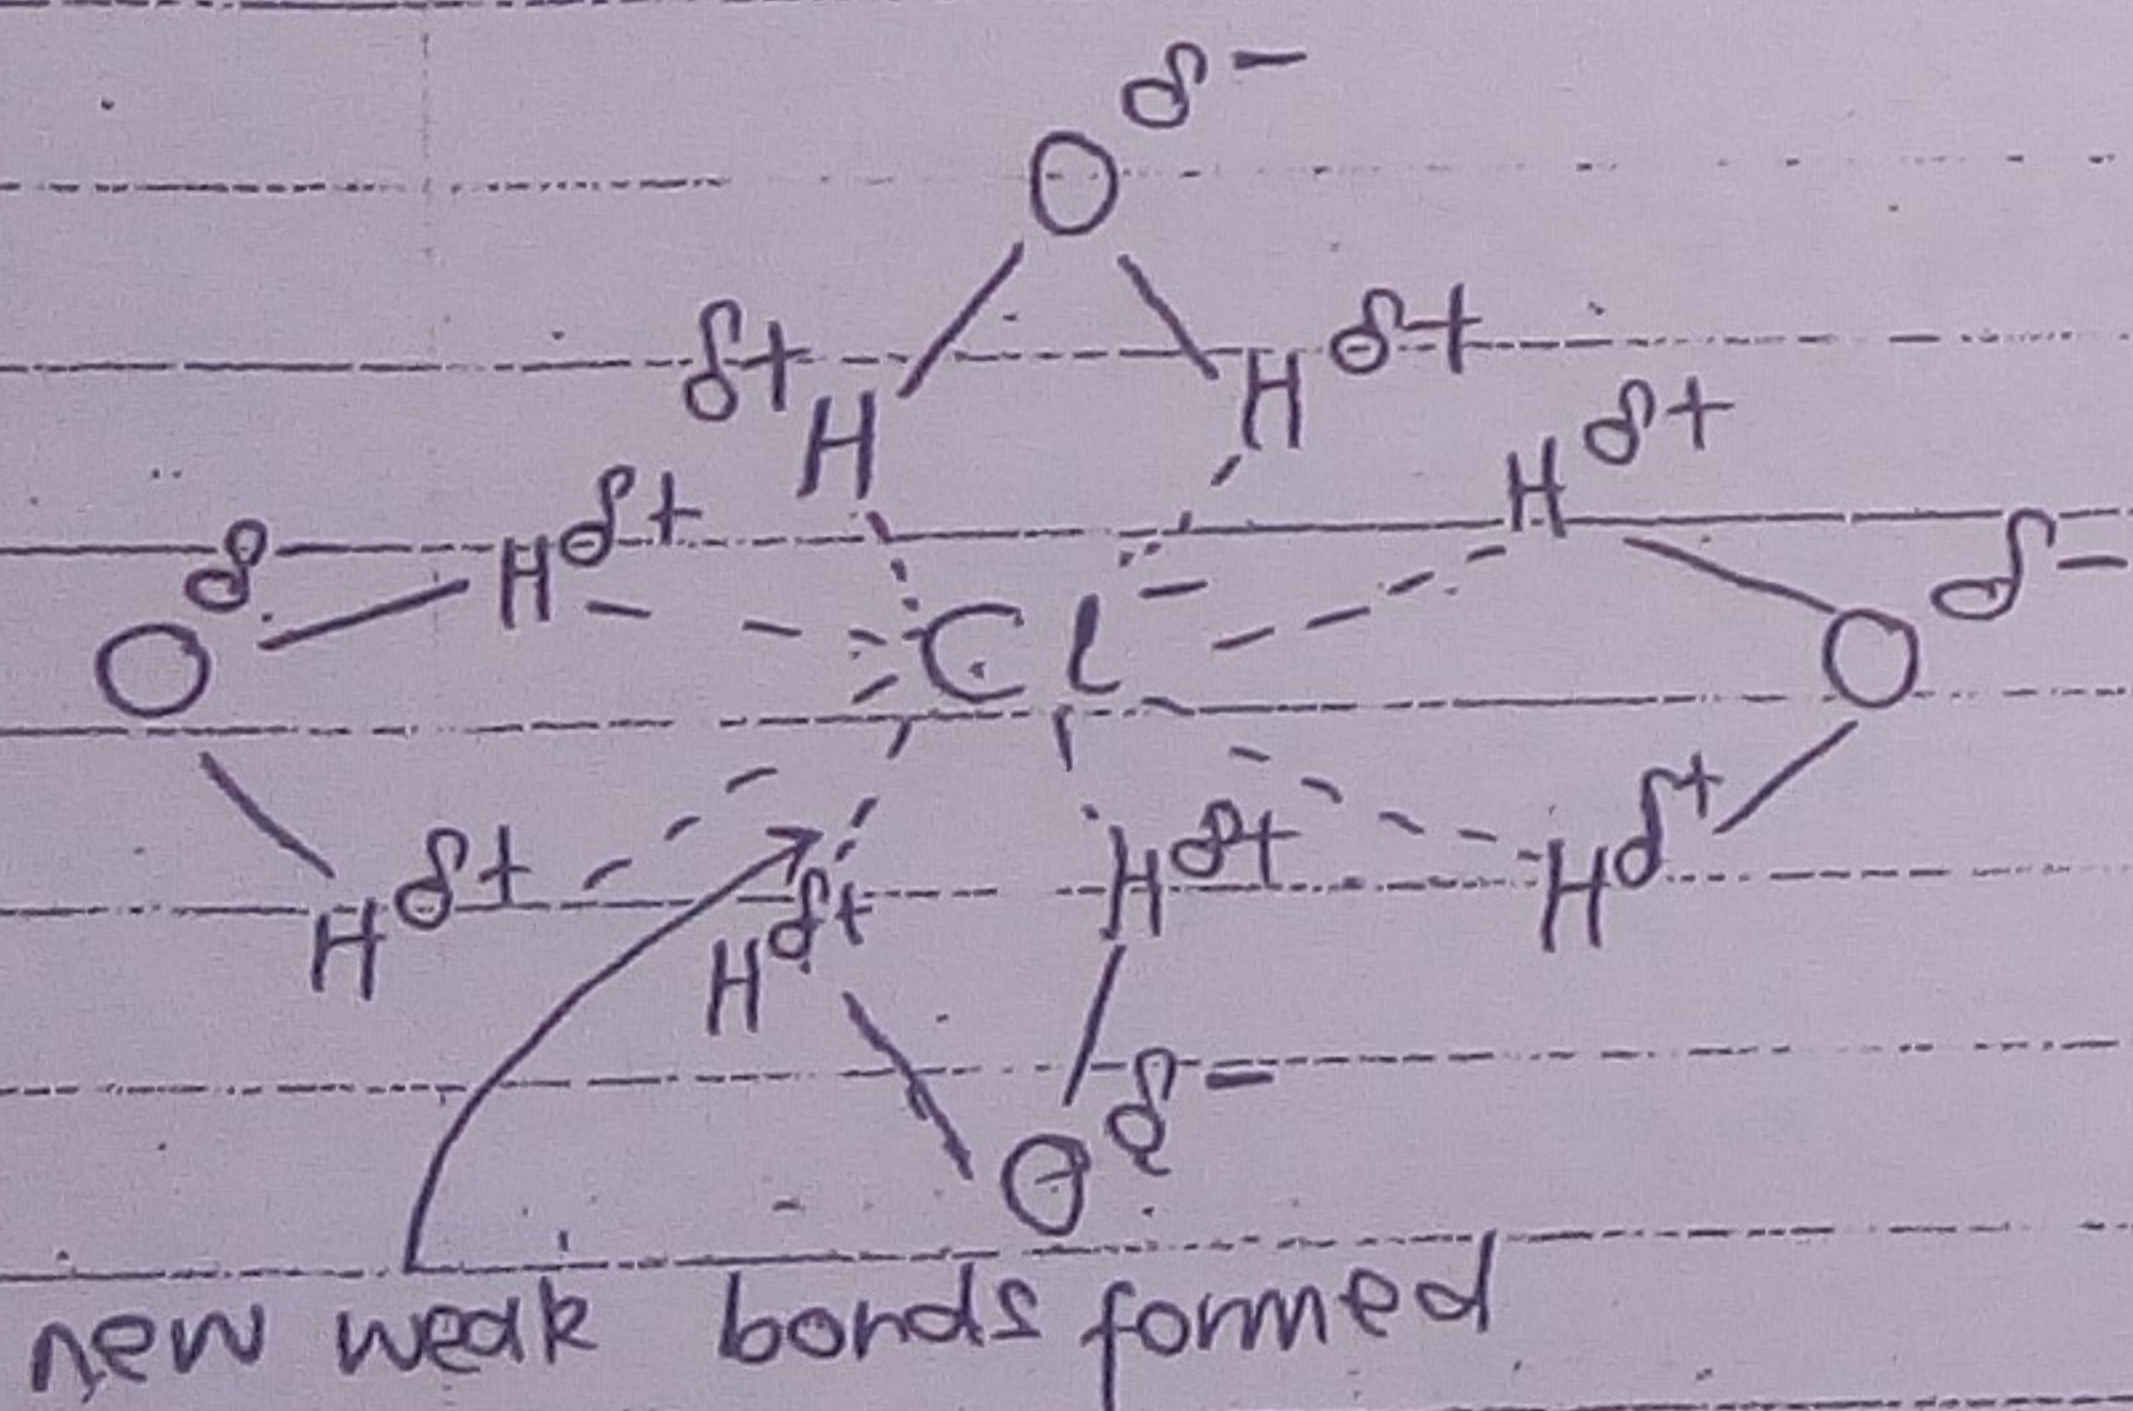 δ-
O
δ+ H
H δ+
H δ+
δ
O
H δ+
Cl -
δ-
O
H δ+
H δ+
H δ+
H δ+
δ-
O
new weak bonds formed